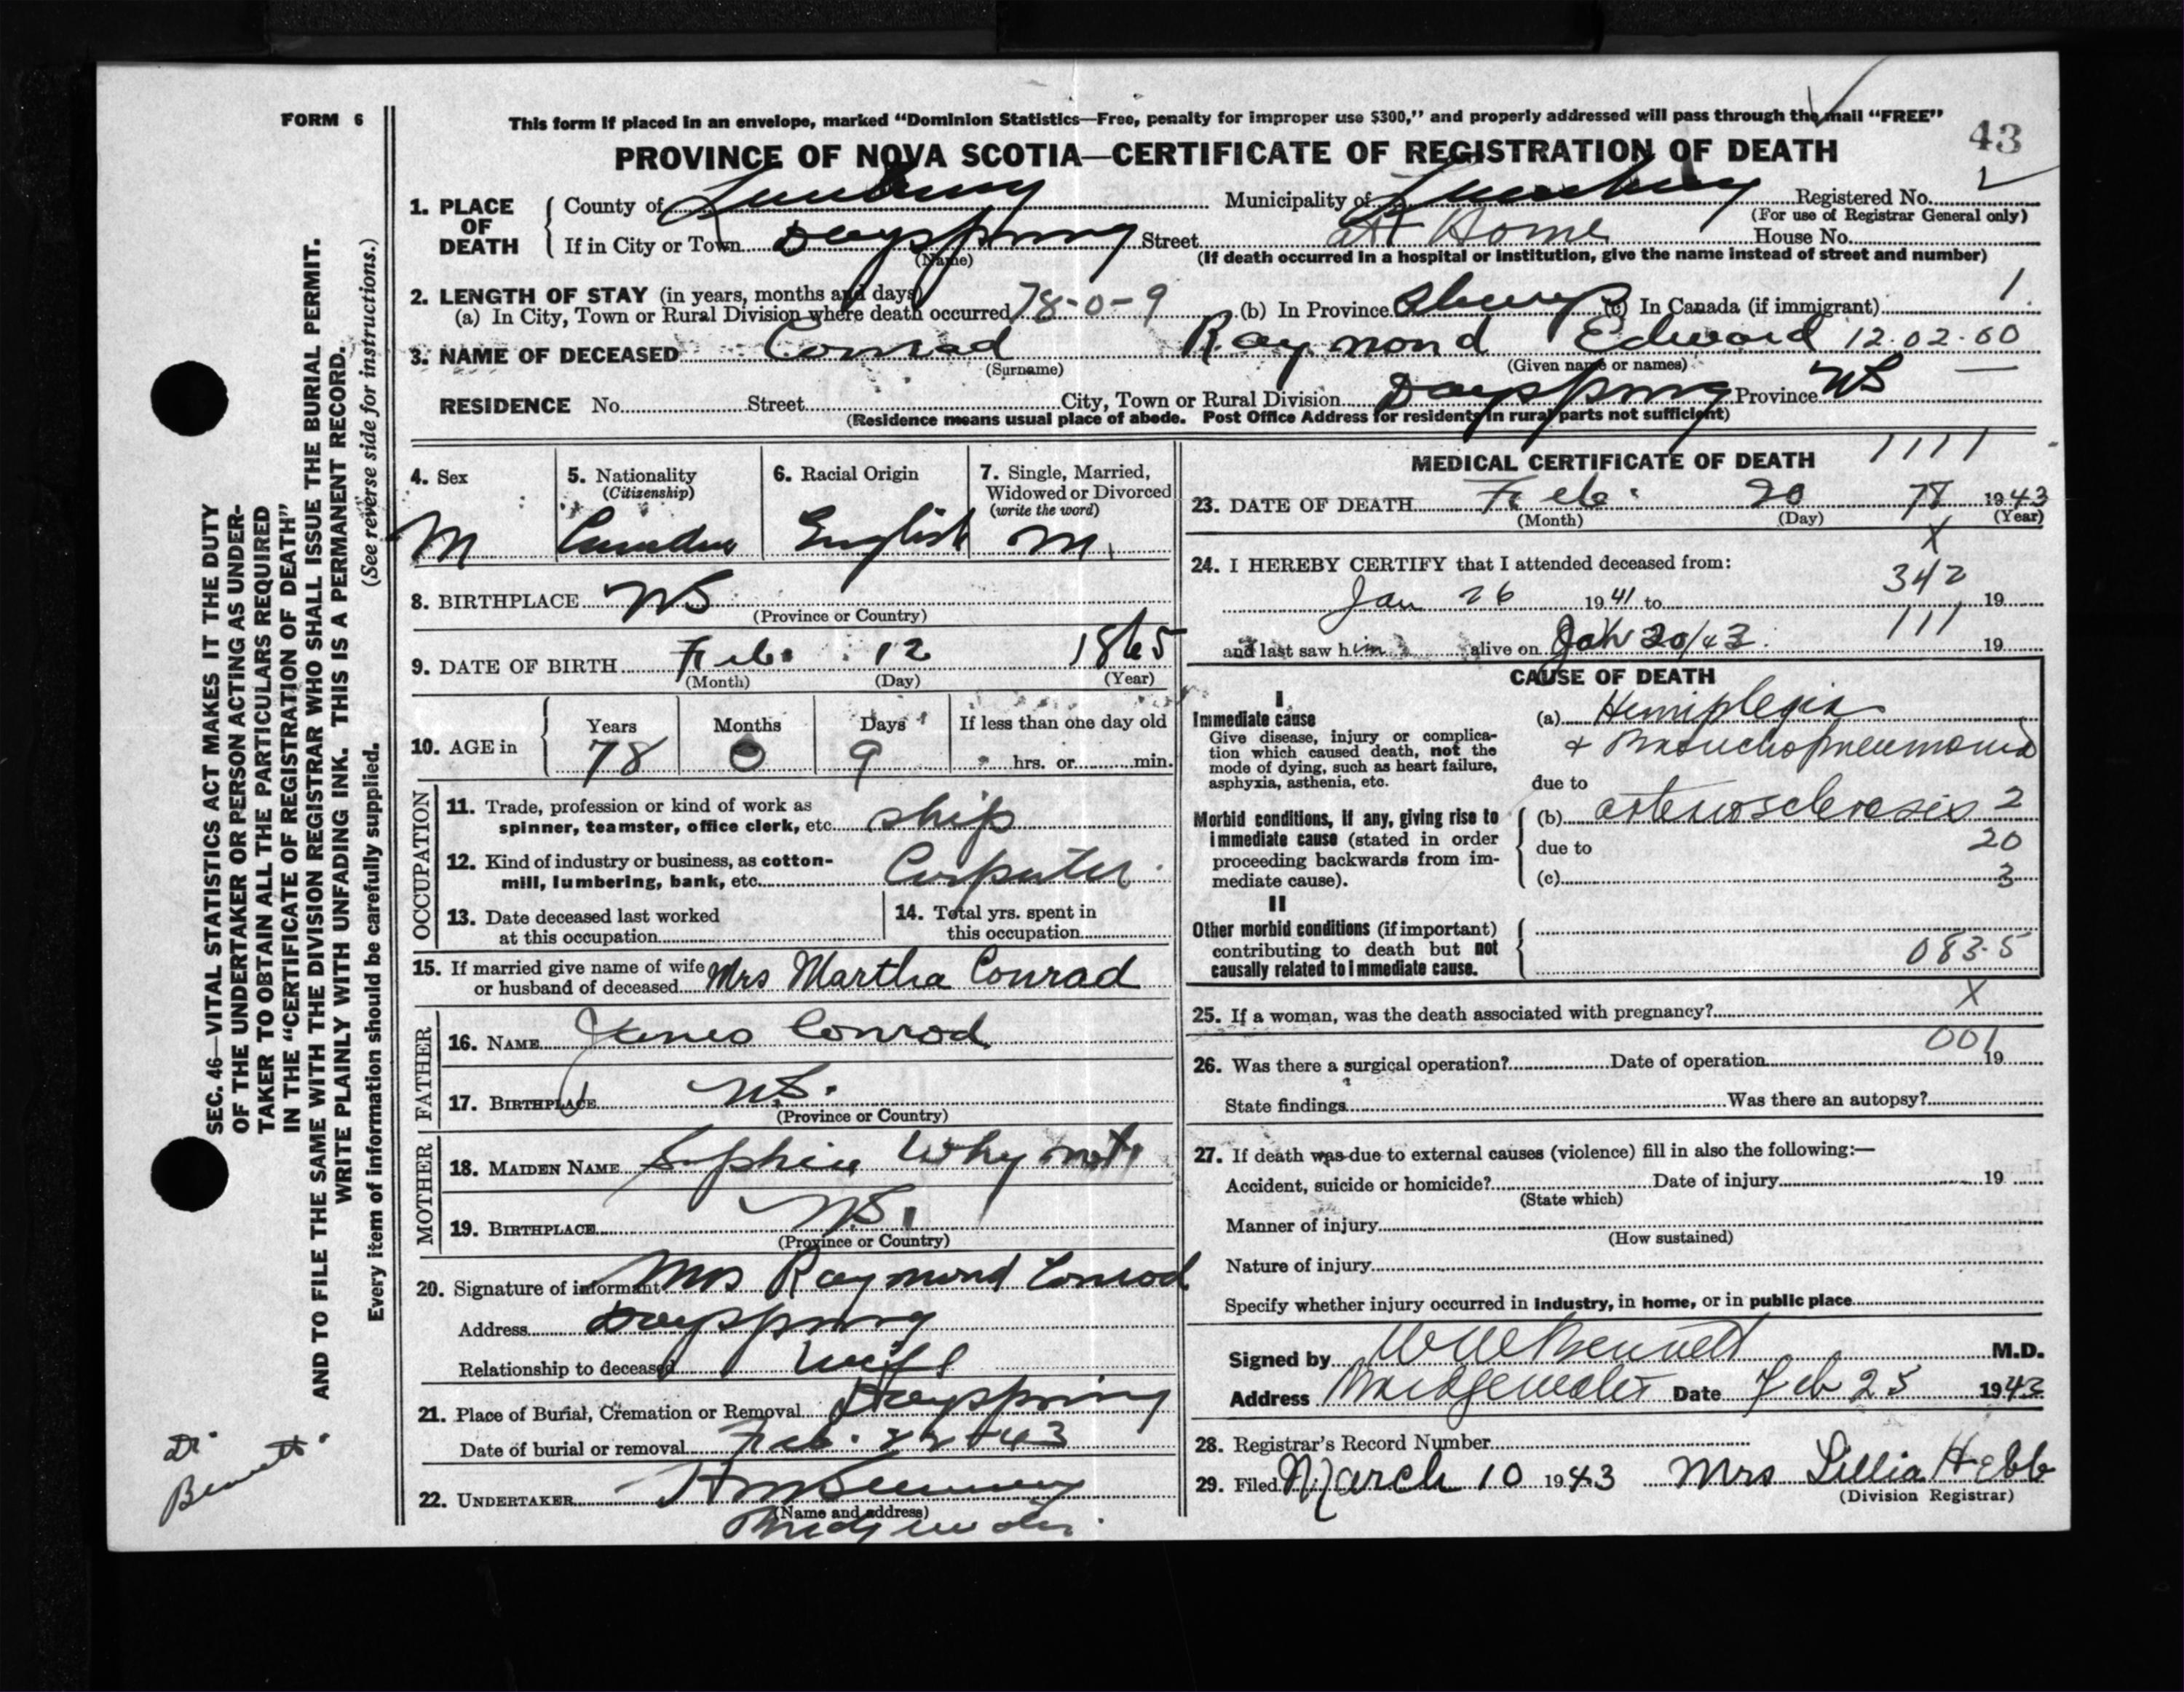 FORM 6
This form if placed in an envelope, marked "Dominion Statistics—Free, penalty for improper use $300," and properly addressed will pass through the mail "FREE"
PROVINCE OF NOVA SCOTIA—CERTIFICATE OF REGISTRATION OF DEATH
43
1. PLACE OF DEATH { County of Lunenburg Municipality of Lunenburg Registered No.
(For use of Registrar General only)
If in City or Town Dayspring Street at Home House No.
(Name) (If death occurred in a hospital or institution, give the name instead of street and number)
2. LENGTH OF STAY (in years, months and days)
(a) In City, Town or Rural Division where death occurred 78-0-9 (b) In Province Always (c) In Canada (if immigrant) 1
3. NAME OF DECEASED Conrad Raymond Edward 12.02.60
(Surname) (Given name or names)
RESIDENCE No. Street City, Town or Rural Division Dayspring Province NS
(Residence means usual place of abode. Post Office Address for residents in rural parts not sufficient)
4. Sex M
5. Nationality (Citizenship)
6. Racial Origin English
7. Single, Married, Widowed or Divorced (write the word) M
8. BIRTHPLACE NS
(Province or Country)
9. DATE OF BIRTH Feb. 12 1865
(Month) (Day) (Year)
10. AGE in { Years Months Days If less than one day old
78 0 9 hrs. or min.
OCCUPATION
11. Trade, profession or kind of work as
spinner, teamster, office clerk, etc. Ship
12. Kind of industry or business, as cotton-
mill, lumbering, bank, etc. Carpenter
13. Date deceased last worked
at this occupation
14. Total yrs. spent in
this occupation
15. If married give name of wife
or husband of deceased Mrs Martha Conrad
FATHER
16. NAME James Conrod
17. BIRTHPLACE N.S.
(Province or Country)
MOTHER
18. MAIDEN NAME Sophia Whynot
19. BIRTHPLACE N.S.
(Province or Country)
20. Signature of informant Mrs Raymond Conrod
Address Dayspring
Relationship to deceased Wife
21. Place of Burial, Cremation or Removal Dayspring
Date of burial or removal Feb. 22 - 43
22. UNDERTAKER
(Name and address)
Bridgewater
MEDICAL CERTIFICATE OF DEATH 1111
23. DATE OF DEATH Feb. 20 78 1943
(Month) (Day) (Year)
X
24. I HEREBY CERTIFY that I attended deceased from:
342
Jan 26 1941 to 19
111
and last saw him alive on Jan 20/43 19
CAUSE OF DEATH
I
Immediate cause
Give disease, injury or complica-
tion which caused death, not the
mode of dying, such as heart failure,
asphyxia, asthenia, etc.
(a) Hemiplegia
+ Bronchopneumonia
due to
Morbid conditions, if any, giving rise to
immediate cause (stated in order
proceeding backwards from im-
mediate cause).
(b) arteriosclerosis 2
due to 20
(c) 3
II
Other morbid conditions (if important)
contributing to death but not
causally related to immediate cause.
083.5
X
25. If a woman, was the death associated with pregnancy?
001
26. Was there a surgical operation? Date of operation 19
State findings Was there an autopsy?
27. If death was due to external causes (violence) fill in also the following:—
Accident, suicide or homicide? Date of injury 19
(State which)
Manner of injury
(How sustained)
Nature of injury
Specify whether injury occurred in industry, in home, or in public place
Signed by Bennett M.D.
Address Bridgewater Date Feb 25 1943
28. Registrar's Record Number
29. Filed March 10 1943 Mrs Lillia Hebb
(Division Registrar)
SEC. 46—VITAL STATISTICS ACT MAKES IT THE DUTY
OF THE UNDERTAKER OR PERSON ACTING AS UNDER-
TAKER TO OBTAIN ALL THE PARTICULARS REQUIRED
IN THE "CERTIFICATE OF REGISTRATION OF DEATH"
AND TO FILE THE SAME WITH THE DIVISION REGISTRAR WHO SHALL ISSUE THE BURIAL PERMIT.
WRITE PLAINLY WITH UNFADING INK. THIS IS A PERMANENT RECORD.
(See reverse side for instructions.)
Every item of information should be carefully supplied.
Dr.
Bennett.